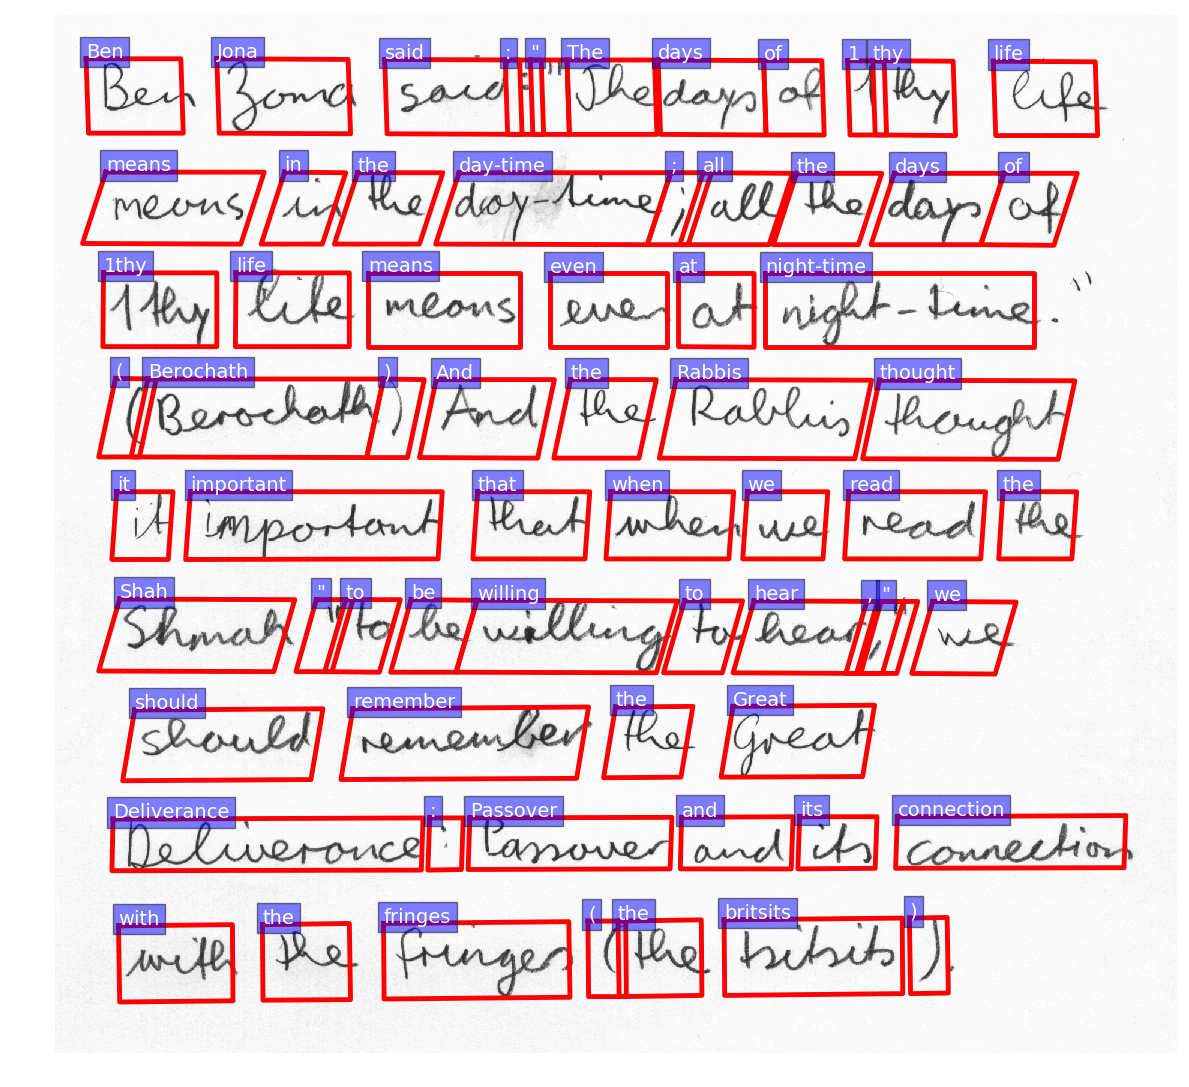 Ben Jona said : " The days of 1 thy life
Ben Zoma said: "The days of 1thy life
means in the day-time ; all the days of
means in the day-time; all the days of
1thy life means even at night-time
1thy life means even at night-time."
( Berochath ) And the Rabbis thought
(Berochath) And the Rabbis thought
it important that when we read the
it important that when we read the
Shah " to be willing to hear , " we
Shmah "to be willing to hear," we
should remember the Great
should remember the Great
Deliverance : Passover and its connection
Deliverance: Passover and its connection
with the fringes ( the britsits )
with the fringes (the tsitsits).